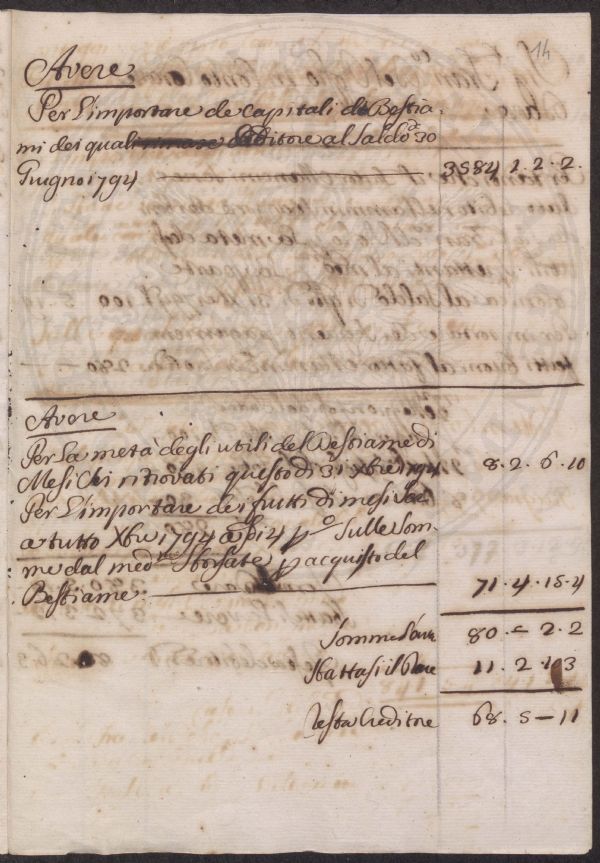 14
Avere
Per L'importare de Capitali di Bestia,
mi dei quali Creditore al Saldo 30
Giugno 1794 3584. 1. 2. 2.
Avere
Per La metà degli utili del Bestiame di
Mesi Sei ritrovati questo dì 31 Xbre 1794 8. 2. 6. 10
Per L'importare dei frutti di mesi Sei
a tutto Xbre 1794 a 4 p o Sulle Som=
me dal med mo Sborsate p acquisto del
Bestiame. 71. 4. 15. 4
Somma l'avere 80. – 2. 2
Sbattasi il Dare 11. 2. 1. 3
Resta Creditore 68. 5 – 11